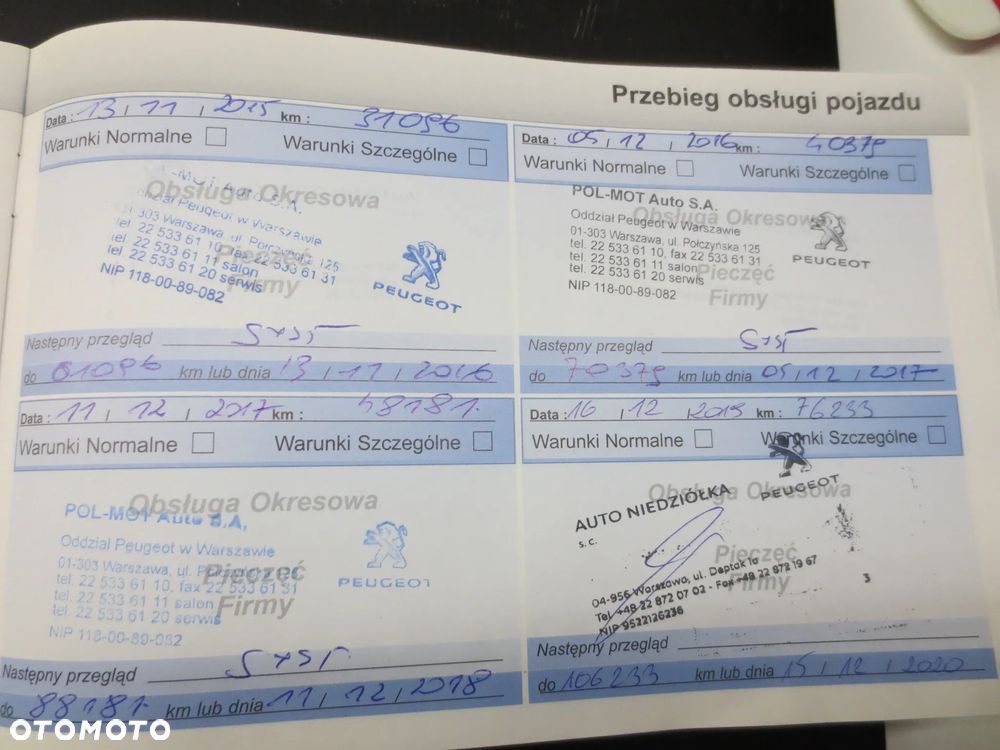 Przebieg obsługi pojazdu
Data : 13 , 11 , 2015 km : 31096
Warunki Normalne Warunki Szczególne
Obsługa Okresowa
-MOT Auto S.A.
Oddział Peugeot w Warszawie
01-303 Warszawa, ul. Połczyńska 125
tel. 22 533 61 10, fax 22 533 61 31
tel. 22 533 61 11 salon
tel. 22 533 61 20 serwis
NIP 118-00-89-082
Pieczęć
Firmy
PEUGEOT
Następny przegląd
do 61096 km lub dnia 13 , 11 , 2016
Data : 05 , 12 , 2016 km : 40379
Warunki Normalne Warunki Szczególne
Obsługa Okresowa
POL-MOT Auto S.A.
Oddział Peugeot w Warszawie
01-303 Warszawa, ul. Połczyńska 125
tel. 22 533 61 10, fax 22 533 61 31
tel. 22 533 61 11 salon
tel. 22 533 61 20 serwis
NIP 118-00-89-082
Pieczęć
Firmy
PEUGEOT
Następny przegląd
do 70379 km lub dnia 05 , 12 , 2017
Data : 11 , 12 , 2017 km : 48181.
Warunki Normalne Warunki Szczególne
Obsługa Okresowa
POL-MOT Auto S.A.
Oddział Peugeot w Warszawie
01-303 Warszawa, ul. Połczyńska 125
tel. 22 533 61 10, fax 22 533 61 31
tel. 22 533 61 11 salon
tel. 22 533 61 20 serwis
NIP 118-00-89-082
Pieczęć
Firmy
PEUGEOT
Następny przegląd
do 88181. km lub dnia 11 , 12 , 2018
Data : 16 , 12 , 2019 km : 76233
Warunki Normalne Warunki Szczególne
Obsługa Okresowa
PEUGEOT
AUTO NIEDZIÓŁKA
s.c.
Pieczęć
Firmy
04-956 Warszawa, ul. Deptak 1a
Tel. +48 22 872 07 02 - Fax +48 22 872 19 67
NIP 9522126236
3
Następny przegląd
do 106233 km lub dnia 15 , 12 , 2020
OTOMOTO